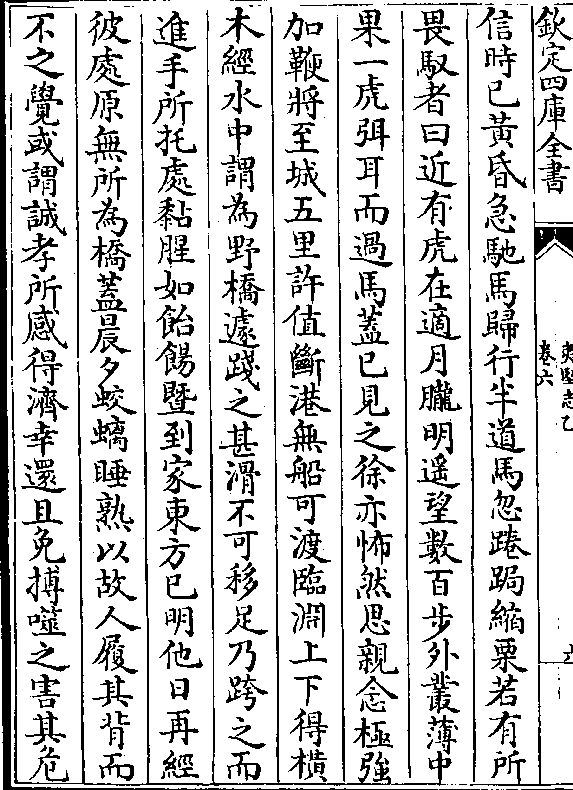 欽定四庫全書
夷堅志乙
卷六
信時已黃昏急馳馬歸行半道馬忽踡跼縮栗若有所
畏馭者曰近有虎在適月朧明遥望數百步外叢薄中
果一虎弭耳而過馬蓋已見之徐亦怖然思親念極強
加鞭將至城五里許值斷港無船可渡臨淵上下得橫
木經水中謂為野橋遽踐之甚滑不可移足乃跨之而
進手所托處黏腥如飴餳暨到家東方已明他日再經
彼處原無所為橋蓋晨夕蛟螭睡熟以故人履其背而
不之覺或謂誠孝所感得濟幸還且免搏噬之害其危